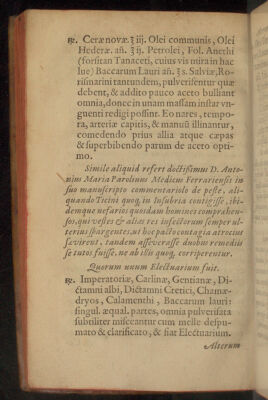 ℞. Ceræ novæ ℥ iij. Olei communis, Olei
Hederæ. añ. ℥ ij. Petrolei, Fol. Anethi
(forsitan Tanaceti, cuius vis mira in hac
lue) Baccarum Lauri añ. ℥ s. Salviæ, Ro-
rismarini tantundem, pulverisentur quæ
debent, & addito pauco aceto bulliant
omnia, donec in unam massam instar un-
guenti redigi possint. Eo nares, tempo-
ra, arteriæ capitis, & manuũ illinantur,
comedendo prius allia atque cæpas
& superbibendo parum de aceto opti-
mo.
Simile aliquid refert doctissimus D. Anto-
nius Maria Parolinus Medicus Ferrariensis in
suo manuscripto commentariolo de peste, ali-
quando Ticini quoq, in Insubria contigisse, ibi-
demque nefarios quosdam homines comprehen-
sos, qui vestes & alias res infectorum semper ul-
terius spargentes, ut hoc pacto contagia atrocius
sævirent, tandem asseverasse duobus remediis
se tutos fuisse, ne ab illis quoq, corriperentur.
Quorum unum Electuarium fuit.
℞. Imperatoriæ, Carlinæ, Gentianæ, Di-
ctamni albi, Dictamni Cretici, Chamæ-
dryos, Calamenthi, Baccarum lauri:
singul. æqual. partes, omnia pulverisata
subtiliter misceantur cum melle despu-
mato & clarificato, & fiat Electuarium.
Alterum